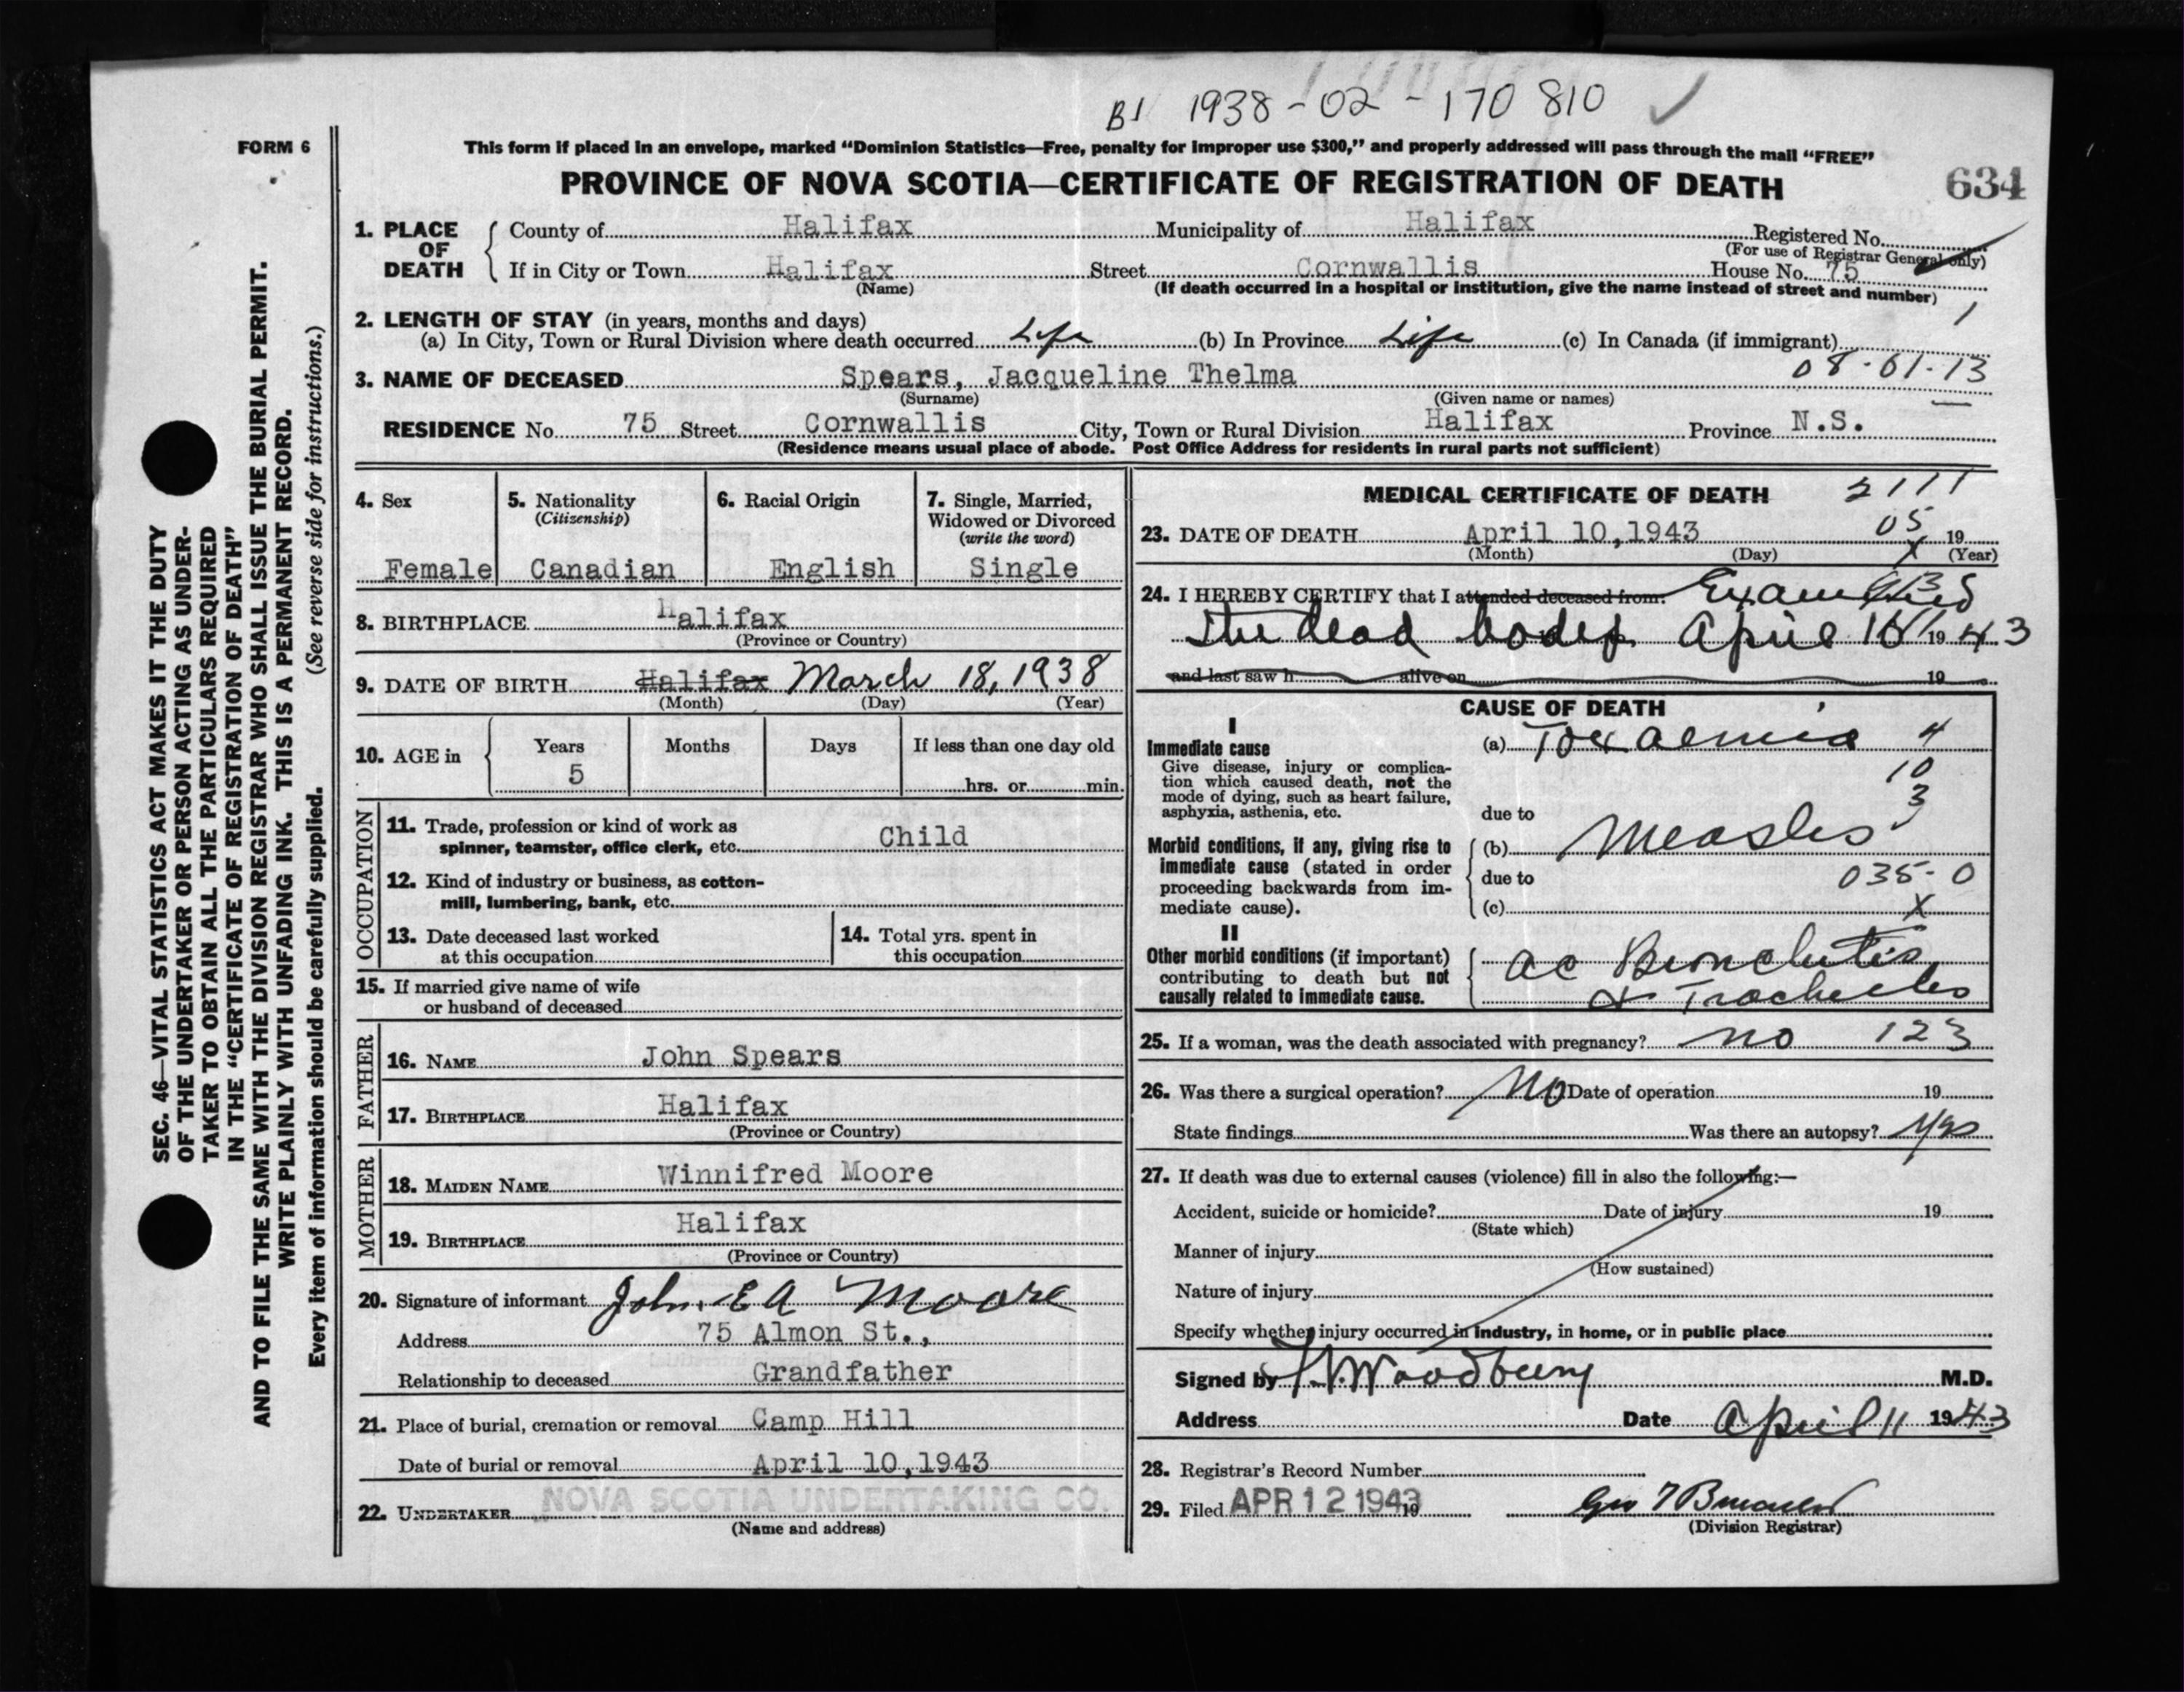 B1 1938-02-170 810
FORM 6
This form if placed in an envelope, marked “Dominion Statistics—Free, penalty for improper use $300,” and properly addressed will pass through the mail “FREE”
PROVINCE OF NOVA SCOTIA—CERTIFICATE OF REGISTRATION OF DEATH
634
1. PLACE OF DEATH
County of Halifax Municipality of Halifax Registered No.
(For use of Registrar General only)
If in City or Town Halifax Street Cornwallis House No. 75
(Name) (If death occurred in a hospital or institution, give the name instead of street and number)
1
2. LENGTH OF STAY (in years, months and days)
(a) In City, Town or Rural Division where death occurred Life (b) In Province Life (c) In Canada (if immigrant)
08-01-13
3. NAME OF DECEASED Spears, Jacqueline Thelma
(Surname) (Given name or names)
RESIDENCE No. 75 Street Cornwallis City, Town or Rural Division Halifax Province N.S.
(Residence means usual place of abode. Post Office Address for residents in rural parts not sufficient)
4. Sex
Female
5. Nationality
(Citizenship)
Canadian
6. Racial Origin
English
7. Single, Married,
Widowed or Divorced
(write the word)
Single
8. BIRTHPLACE Halifax
(Province or Country)
9. DATE OF BIRTH Halifax March 18, 1938
(Month) (Day) (Year)
10. AGE in
Years Months Days If less than one day old
5 hrs. or min.
OCCUPATION
11. Trade, profession or kind of work as
spinner, teamster, office clerk, etc. Child
12. Kind of industry or business, as cotton-
mill, lumbering, bank, etc.
13. Date deceased last worked
at this occupation
14. Total yrs. spent in
this occupation
15. If married give name of wife
or husband of deceased
FATHER
16. NAME John Spears
17. BIRTHPLACE Halifax
(Province or Country)
MOTHER
18. MAIDEN NAME Winnifred Moore
19. BIRTHPLACE Halifax
(Province or Country)
20. Signature of informant John E A Moore
Address 75 Almon St.,
Relationship to deceased Grandfather
21. Place of burial, cremation or removal Camp Hill
Date of burial or removal April 10,1943
22. UNDERTAKER NOVA SCOTIA UNDERTAKING CO.
(Name and address)
MEDICAL CERTIFICATE OF DEATH 2111
23. DATE OF DEATH April 10,1943 05 19
(Month) (Day) X (Year)
24. I HEREBY CERTIFY that I attended deceased from: Examined
The dead body April 1943
and last saw h alive on 19
CAUSE OF DEATH
I
Immediate cause
Give disease, injury or complica-
tion which caused death, not the
mode of dying, such as heart failure,
asphyxia, asthenia, etc.
(a) Toxaemia 4
10
3
due to
Morbid conditions, if any, giving rise to
immediate cause (stated in order
proceeding backwards from im-
mediate cause).
(b) Measles
due to 035-0
(c) X
II
Other morbid conditions (if important)
contributing to death but not
causally related to immediate cause.
ac Bronchitis
& Tracheitis
25. If a woman, was the death associated with pregnancy? no 123
26. Was there a surgical operation? No Date of operation 19
State findings Was there an autopsy? Yes
27. If death was due to external causes (violence) fill in also the following:—
Accident, suicide or homicide? Date of injury 19
(State which)
Manner of injury
(How sustained)
Nature of injury
Specify whether injury occurred in industry, in home, or in public place
Signed by Woodbury M.D.
Address Date April 11 1943
28. Registrar's Record Number
29. Filed APR 12 1943 19
(Division Registrar)
SEC. 46—VITAL STATISTICS ACT MAKES IT THE DUTY
OF THE UNDERTAKER OR PERSON ACTING AS UNDER-
TAKER TO OBTAIN ALL THE PARTICULARS REQUIRED
IN THE “CERTIFICATE OF REGISTRATION OF DEATH”
AND TO FILE THE SAME WITH THE DIVISION REGISTRAR WHO SHALL ISSUE THE BURIAL PERMIT.
WRITE PLAINLY WITH UNFADING INK. THIS IS A PERMANENT RECORD.
Every item of information should be carefully supplied. (See reverse side for instructions.)